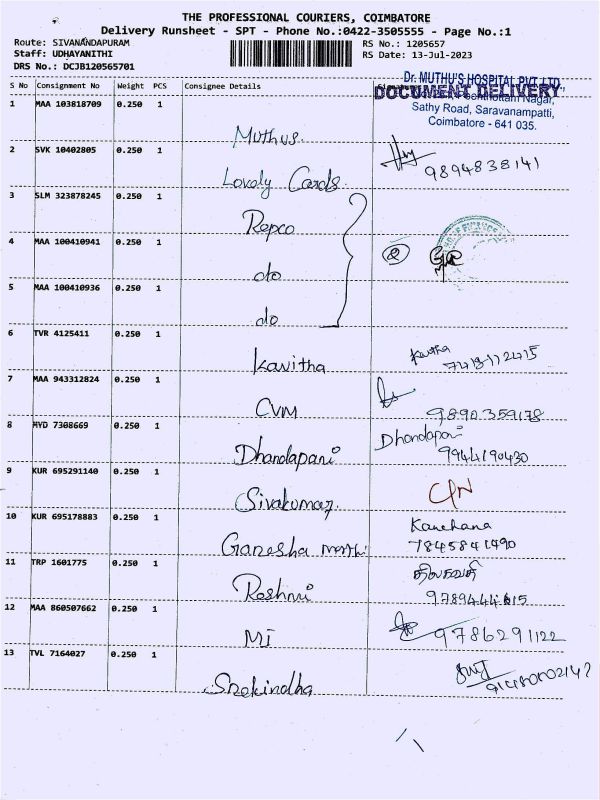 THE PROFESSIONAL COURIERS, COIMBATORE
Delivery Runsheet - SPT - Phone No.:0422-3505555 - Page No.:1
Route: SIVANANDAPURAM
Staff: UDHAYANITHI
DRS No.: DCJB120565701
RS No.: 1205657
RS Date: 13-Jul-2023
Dr. MUTHU'S HOSPITAL PVT LTD.,
DOCUMENT DELIVERY
Nagar,
Sathy Road, Saravanampatti,
Coimbatore - 641 035.
S No Consignment No Weight PCS Consignee Details
1 MAA 103818709 0.250 1 Muthus
2 SVK 10402805 0.250 1 Lovely Cards 9894838141
3 SLM 323878245 0.250 1 Repco
4 MAA 100410941 0.250 1 do
5 MAA 100410936 0.250 1 do
6 TVR 4125411 0.250 1 Kavitha Kavitha
7 MAA 943312824 0.250 1 CVM 9890359178
8 MYD 7308669 0.250 1 Dhandapani Dhandapani
9944190430
9 KUR 695291140 0.250 1 Sivakumar
10 KUR 695178883 0.250 1 Ganesha Kanchana
7845841490
11 TRP 1601775 0.250 1 Reshmi திலகவதி
12 MAA 860507662 0.250 1 Mi 9786291122
13 TVL 7164027 0.250 1 Snekindha